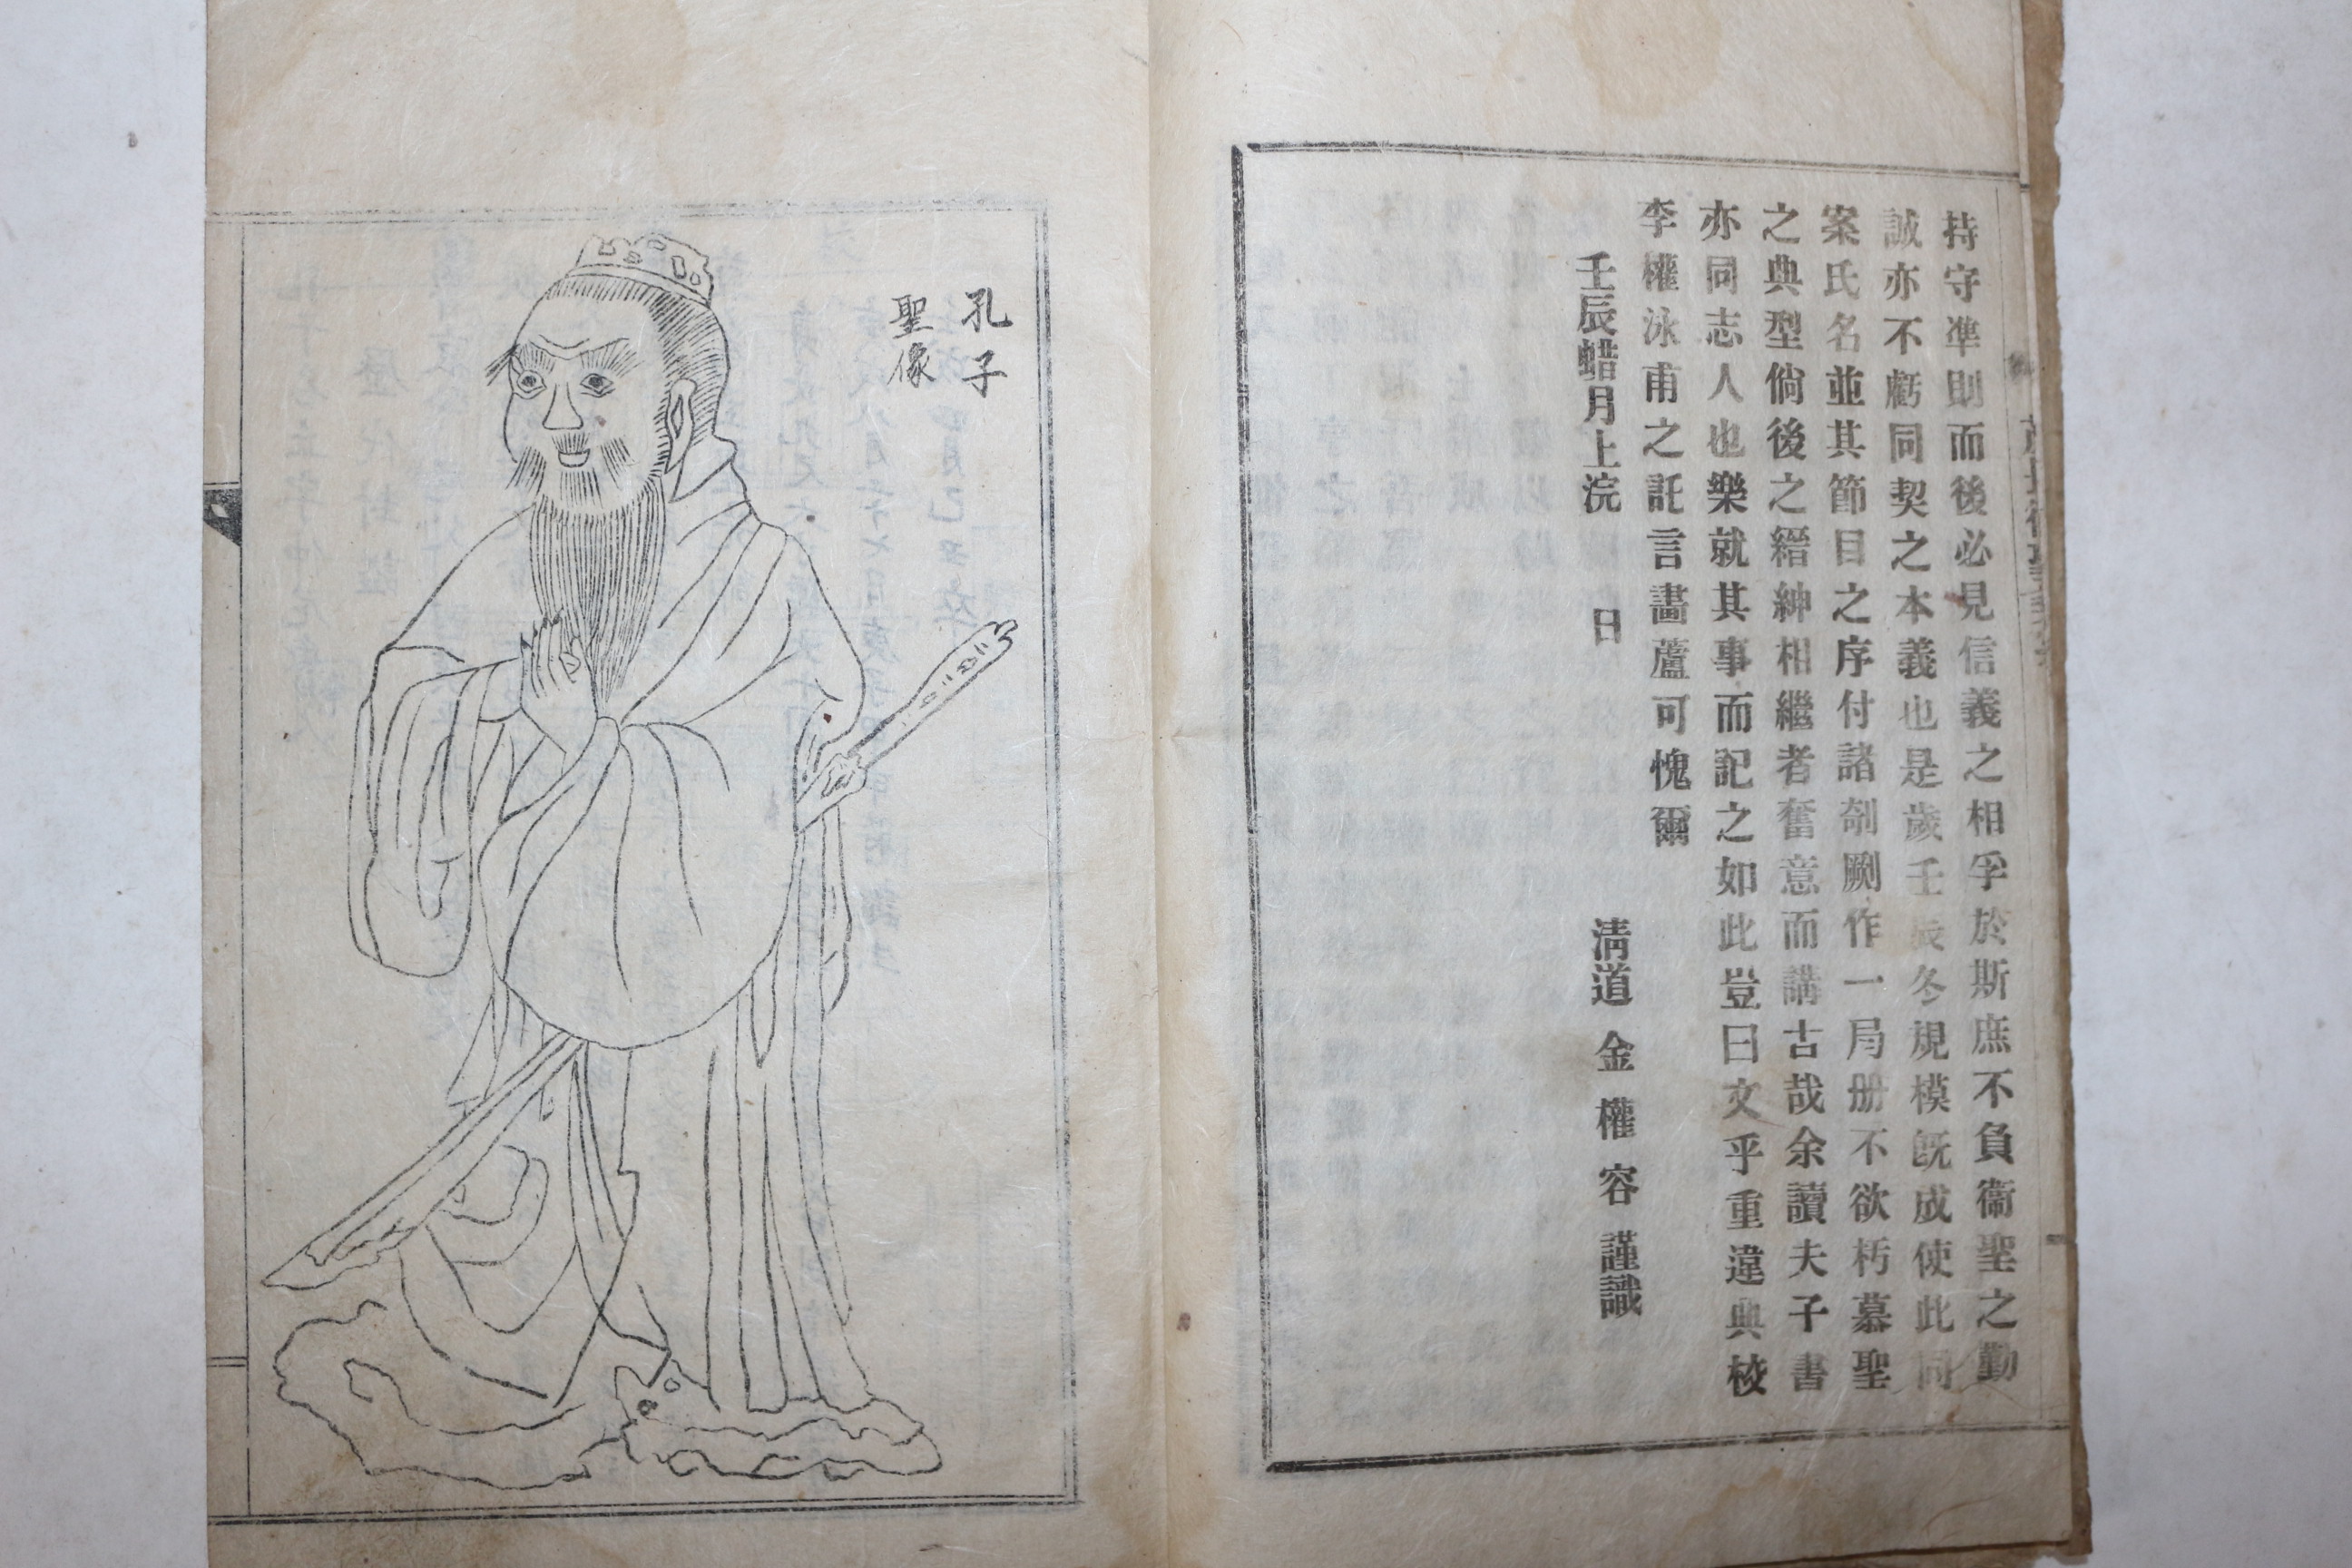 持守準則而後必見信義之相孚於斯庶不負衞聖之勤
誠亦不虧同契之本義也是歲壬辰冬規模旣成使此同
案氏名並其節目之序付諸剞劂作一局册不欲朽慕聖
之典型倘後之縉紳相繼者奮意而講古哉余讀夫子書
亦同志人也樂就其事而記之如此豈曰文乎重違典校
李權泳甫之託言畵蘆可愧爾
壬辰蜡月上浣 日 淸道 金 權 容 謹識
孔子
聖像